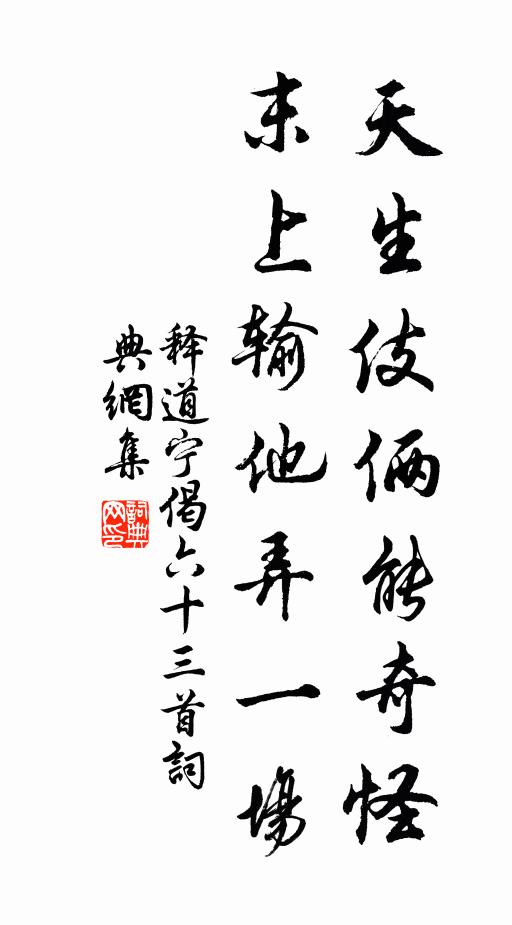 天生伎倆能奇怪
末上输他弄一場
释道宁偈六十三首詞
典網集
詞典網印